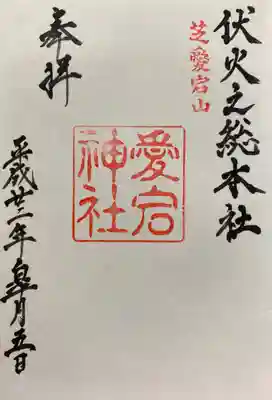 伏火之総本社
芝愛宕山
愛宕
神社
奉拝
平成廿一年皐月五日